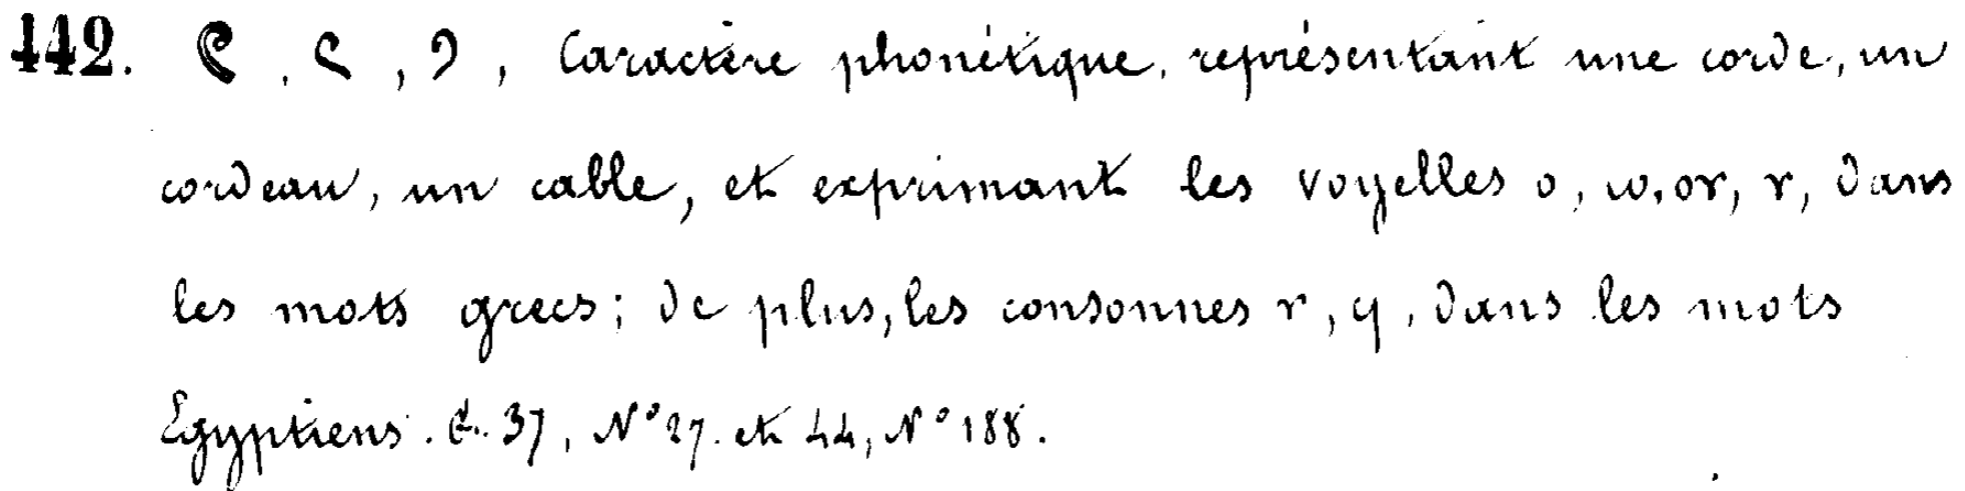 442. 𓏲, , , Caractère phonétique, représentant une corde, un
cordeau, un cable, et exprimant les voyelles o, ω, ογ, γ, dans
les mots grecs; de plus, les consonnes γ, ϥ, dans les mots
Egyptiens. 37, N° 27. et 44, N° 188.